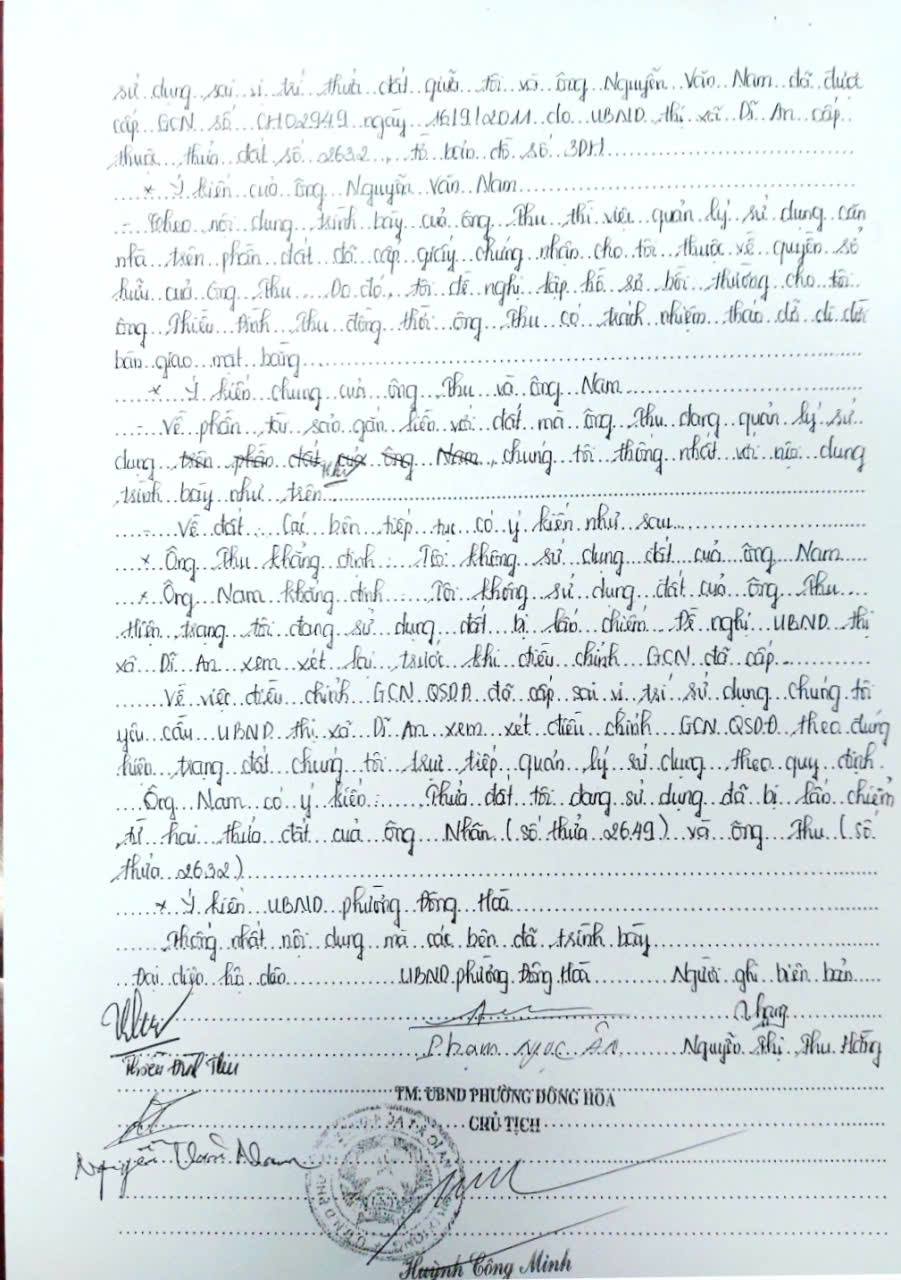 sử dụng sai vị trí thửa đất giữa tôi và ông Nguyễn Văn Nam đã được
cấp GCN số CH02949 ngày 16/9/2011 do UBND thị xã Dĩ An cấp
thuộc thửa đất số 2632, tờ bản đồ số 3DH
* Ý kiến của ông Nguyễn Văn Nam
- Theo nội dung trình bày của ông Thu thì việc quản lý sử dụng căn
nhà trên phần đất đã cấp giấy chứng nhận cho tôi thuộc về quyền sở
hữu của ông Thu. Do đó, tôi đề nghị lập hồ sơ bồi thường cho tôi
ông Thiều Đình Thu đồng thời ông Thu có trách nhiệm tháo dỡ di dời
bàn giao mặt bằng
* Ý kiến chung của ông Thu và ông Nam
- Về phần tài sản gắn liền với đất mà ông Thu đang quản lý sử
dụng trên phần đất của ông Nam, chúng tôi thống nhất với nội dung
Thu
trình bày như trên
- Về đất: Các bên tiếp tục có ý kiến như sau
* Ông Thu khẳng định: Tôi không sử dụng đất của ông Nam
* Ông Nam khẳng định: Tôi không sử dụng đất của ông Thu
Hiện trạng tôi đang sử dụng đất bị lấn chiếm. Đề nghị UBND thị
xã Dĩ An xem xét lại trước khi điều chỉnh GCN đã cấp.
Về việc điều chỉnh GCN QSDĐ đã cấp sai vị trí sử dụng chúng tôi
yêu cầu UBND thị xã Dĩ An xem xét điều chỉnh GCN QSDĐ theo đúng
hiện trạng đất chúng tôi trực tiếp quản lý sử dụng theo quy định.
Ông Nam có ý kiến: Thửa đất tôi đang sử dụng đã bị lấn chiếm
từ hai thửa đất của ông Nhân (số thửa 2649) và ông Thu (số
thửa 2632)
* Ý kiến UBND phường Đông Hoà
Thống nhất nội dung mà các bên đã trình bày
Đại diện hộ dân UBND phường Đông Hoà Người ghi biên bản
Thiều Đình Thu Phạm Ngọc Ân Nguyễn Thị Thu Hằng
TM: UBND PHƯỜNG ĐÔNG HÒA
CHỦ TỊCH
Nguyễn Văn Nam
Huỳnh Công Minh